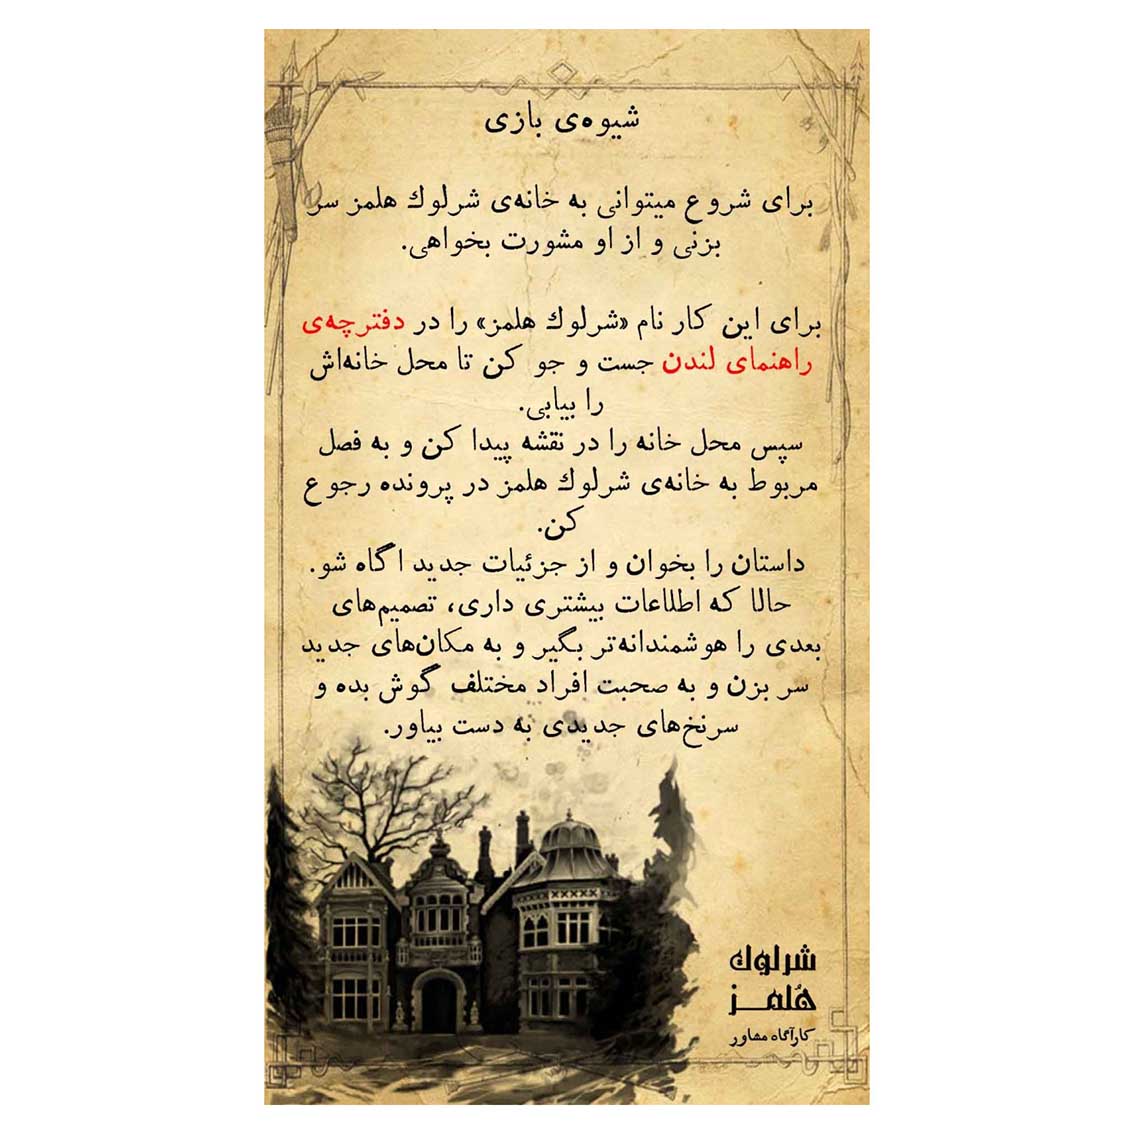 شیوه‌ی بازی
برای شروع میتوانی به خانه‌ی شرلوك هلمز سر
بزنی و از او مشورت بخواهی.
برای این کار نام «شرلوك هلمز» را در دفترچه‌ی
راهنمای لندن جست و جو کن تا محل خانه‌اش
را بیابی.
سپس محل خانه را در نقشه پیدا کن و به فصل
مربوط به خانه‌ی شرلوك هلمز در پرونده رجوع
کن.
داستان را بخوان و از جزئیات جدید اگاه شو.
حالا که اطلاعات بیشتری داری، تصمیم‌های
بعدی را هوشمندانه‌تر بگیر و به مکان‌های جدید
سر بزن و به صحبت افراد مختلف گوش بده و
سرنخ‌های جدیدی به دست بیاور.
شرلوك
هُلمز
کارآگاه مشاور